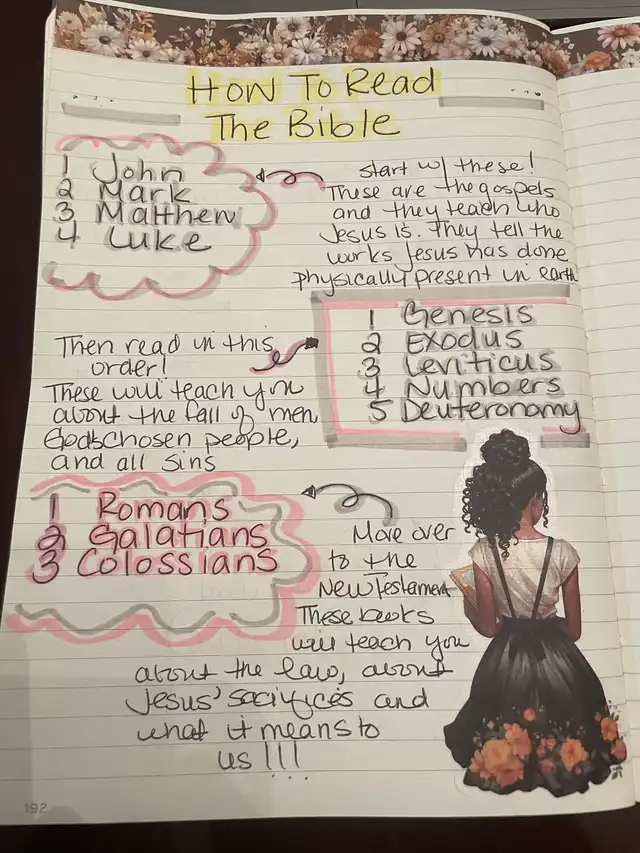 How To Read
The Bible
1 John
2 Mark
3 Matthew
4 Luke
start w/ these!
These are the gospels
and they teach who
Jesus is. They tell the
works Jesus has done
physically present in earth
1 Genesis
2 Exodus
3 Leviticus
4 Numbers
5 Deuteronomy
Then read in this
order!
These will teach you
about the fall of men,
God's chosen people,
and all sins
1 Romans
2 Galatians
3 Colossians
Move over
to the
New Testament
These books
will teach you
about the law, about
Jesus' sacrifices and
what it means to
us!!!
192